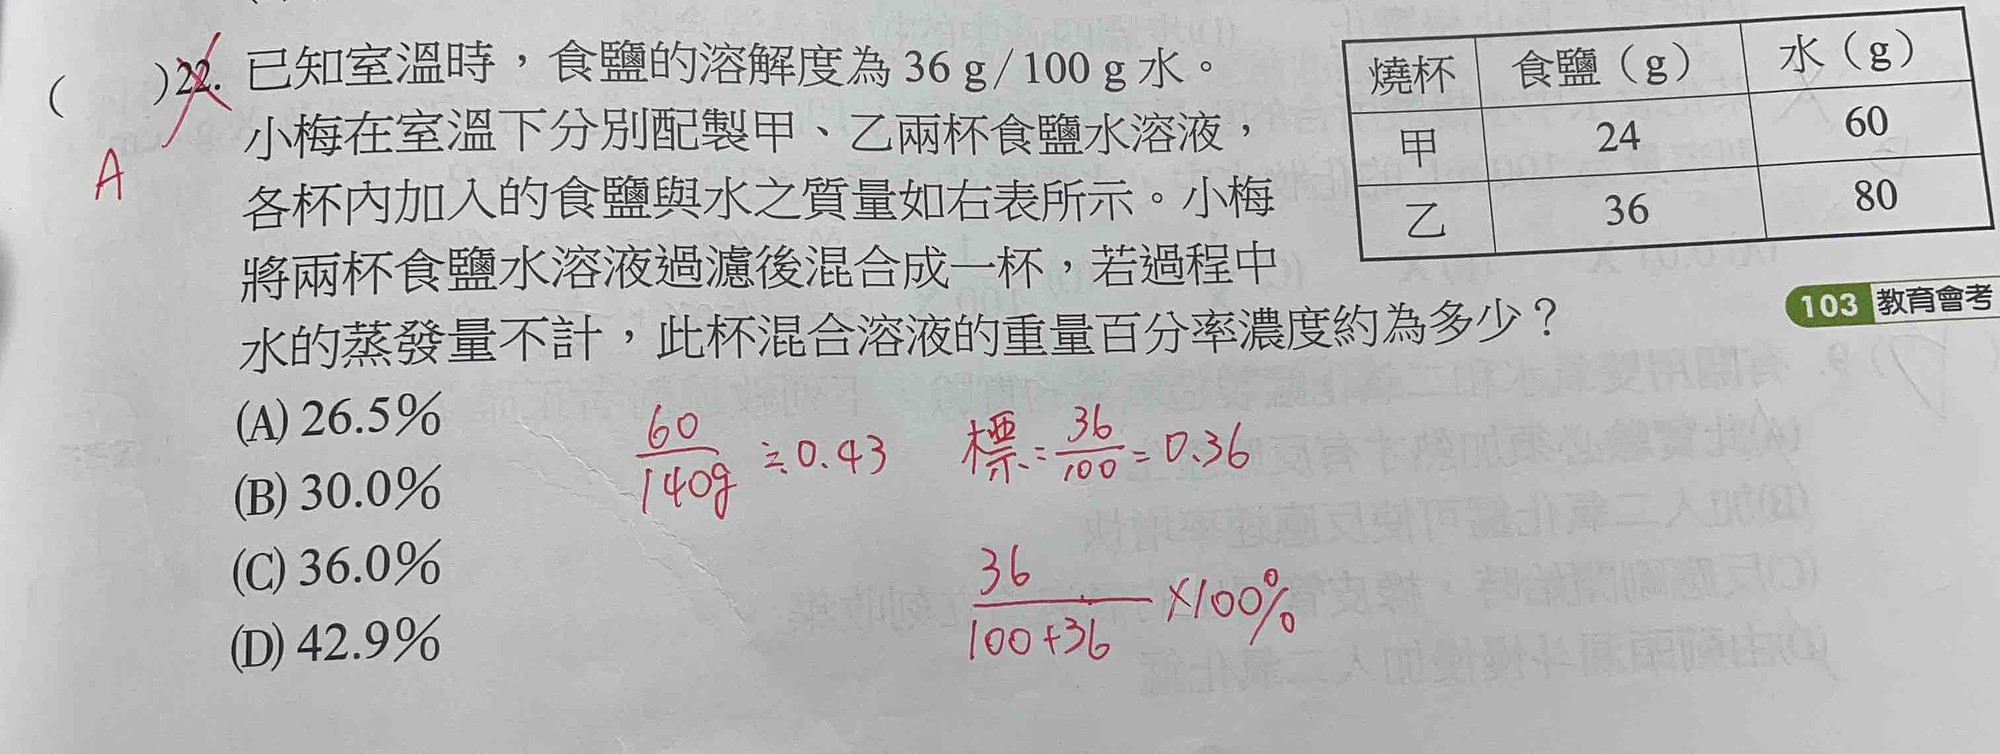 ( )22. 已知室溫時，食鹽的溶解度為 36 g/100 g 水。
小梅在室溫下分別配製甲、乙兩杯食鹽水溶液，
A
各杯內加入的食鹽與水之質量如右表所示。小梅
將兩杯食鹽水溶液過濾後混合成一杯，若過程中
水的蒸發量不計，此杯混合溶液的重量百分率濃度約為多少？
燒杯 食鹽（g） 水（g）
甲 24 60
乙 36 80
103 教育會考
(A) 26.5%
(B) 30.0%
(C) 36.0%
(D) 42.9%
60/140g ≒ 0.43 標：36/100 = 0.36
36/100+36 ×100%